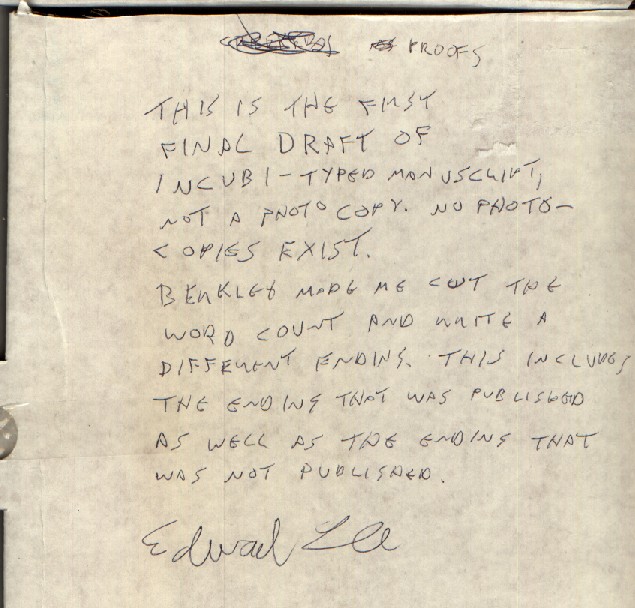 PROOFS
THIS IS THE FIRST
FINAL DRAFT OF
INCUBI - TYPED MANUSCRIPT,
NOT A PHOTO COPY. NO PHOTO-
COPIES EXIST.
BERKLEY MADE ME CUT THE
WORD COUNT AND WRITE A
DIFFERENT ENDING. THIS INCLUDES
THE ENDING THAT WAS PUBLISHED
AS WELL AS THE ENDING THAT
WAS NOT PUBLISHED.
Edward Lee